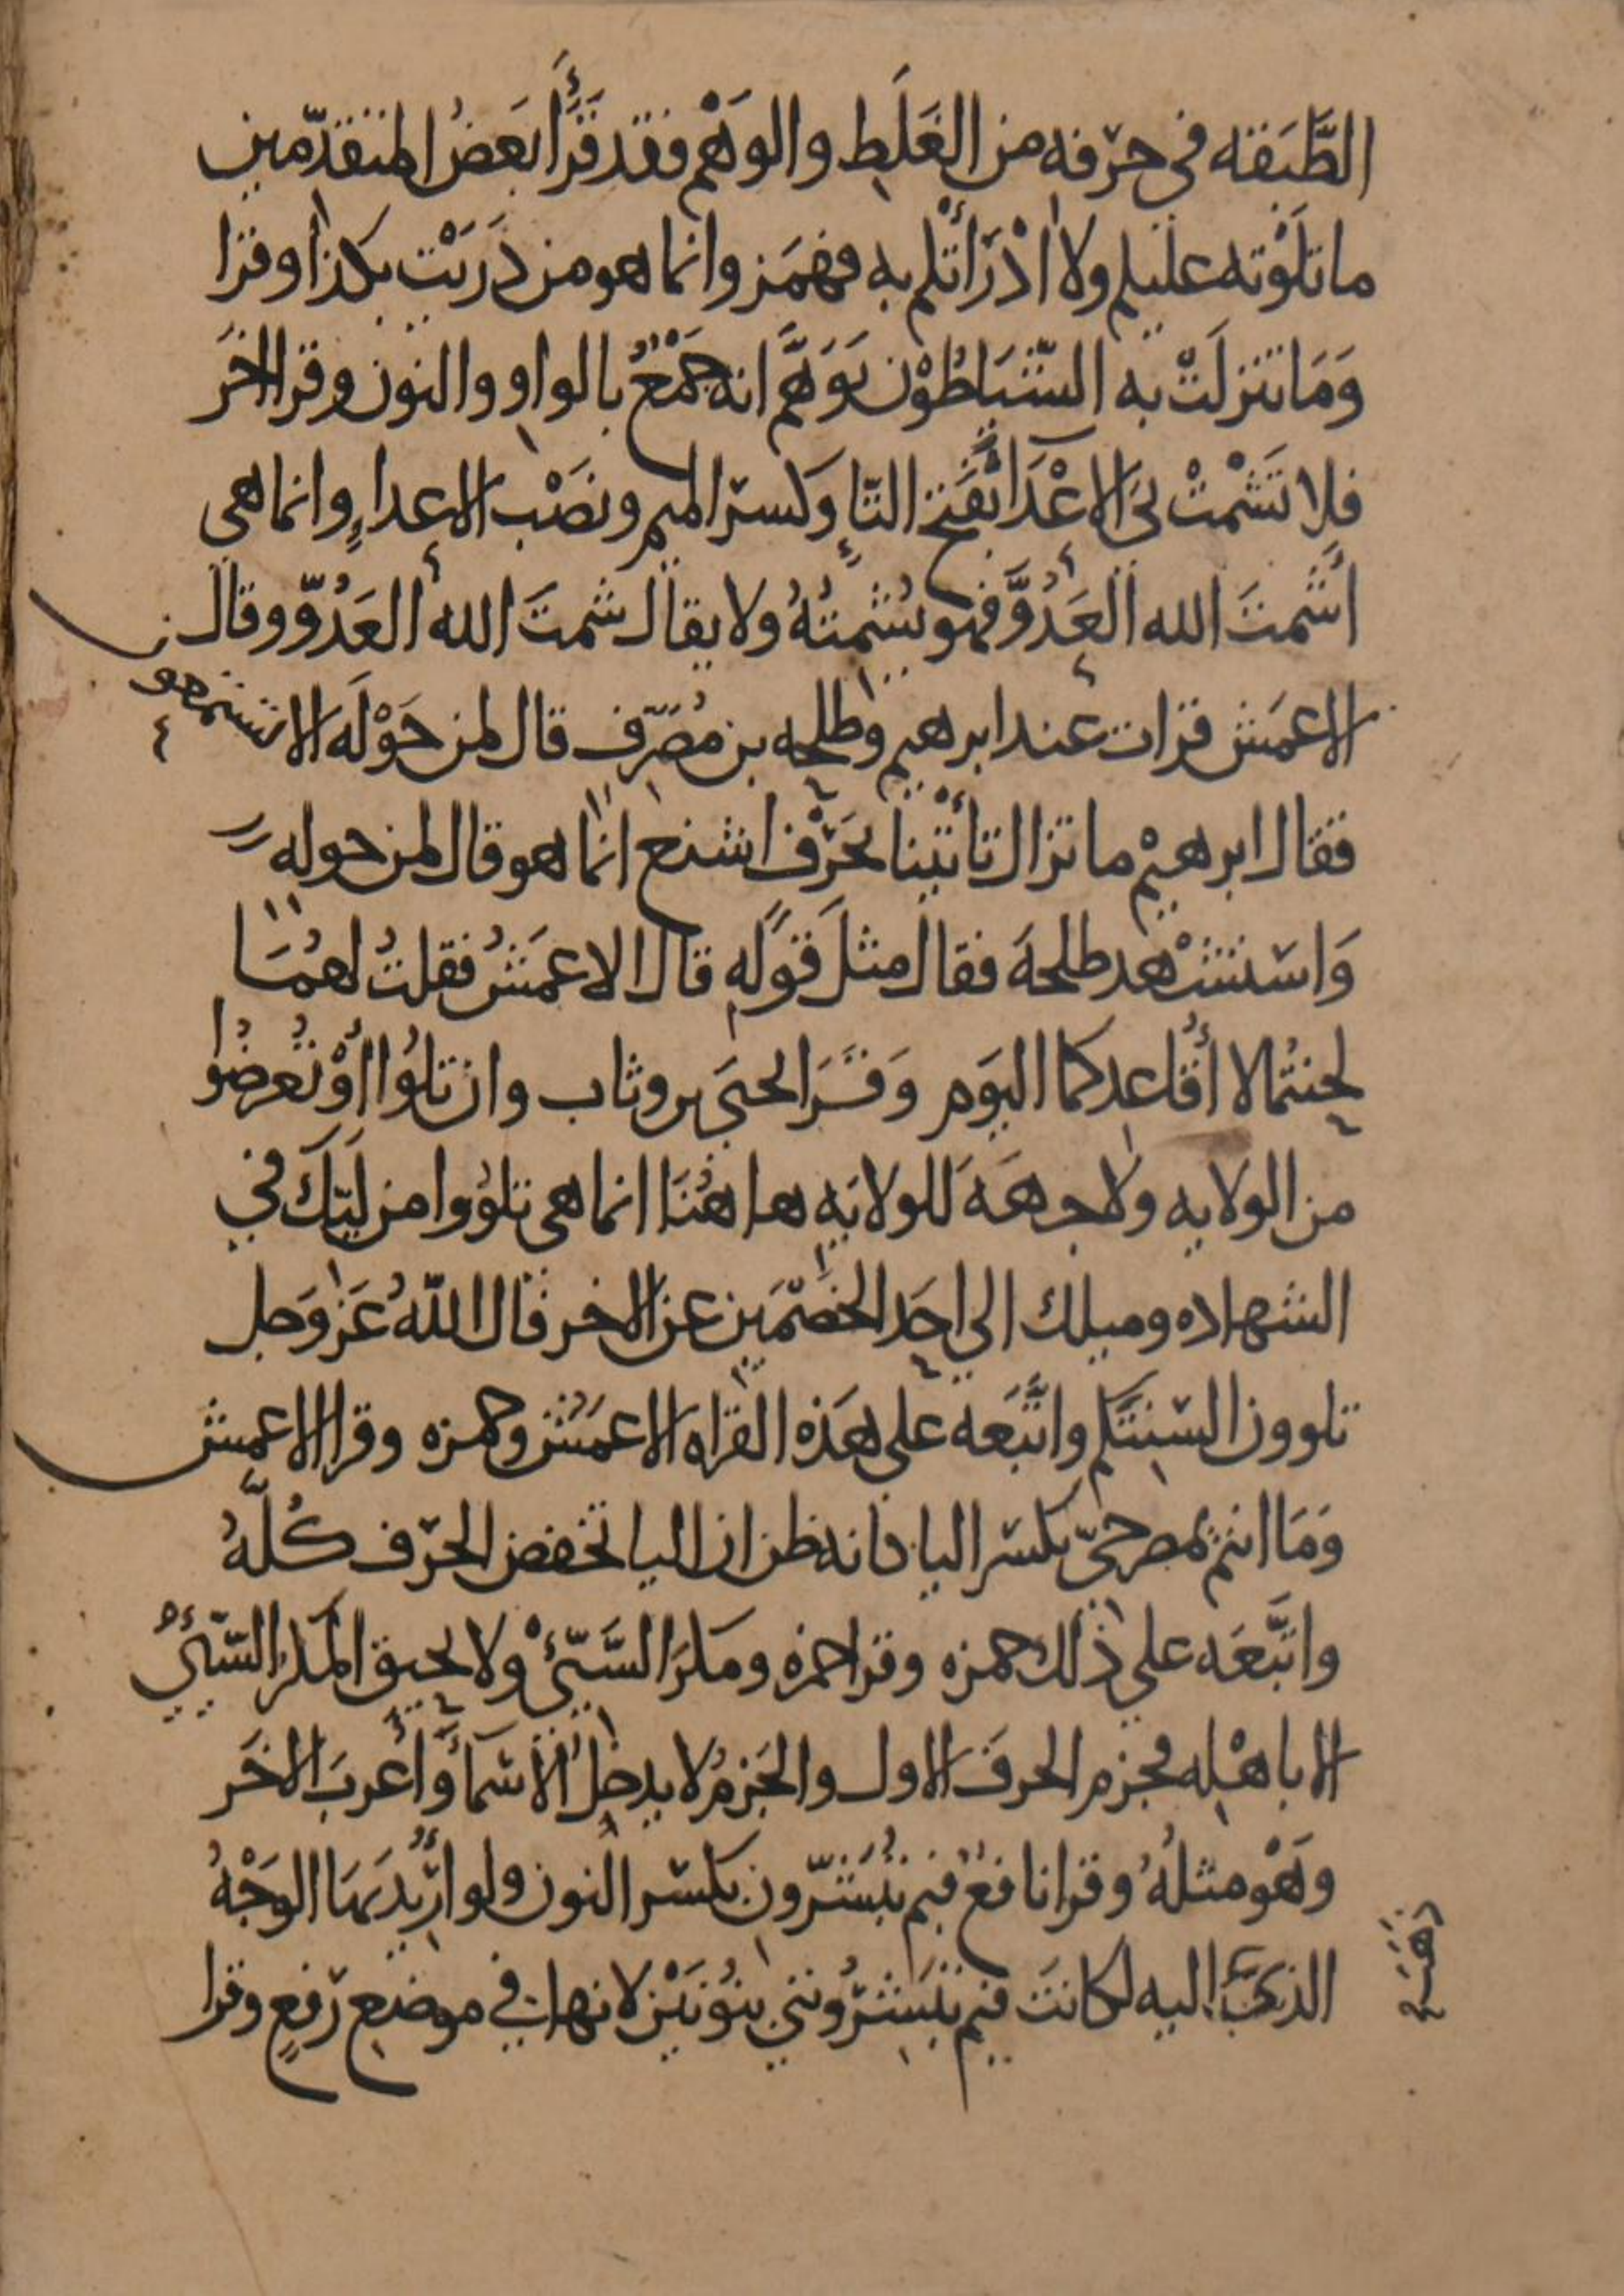 الطَّبَقه في حرْفه من الغَلَط والوَهْم فقد قَرَأ بَعضُ المتقدّمين
ما تلَوْته عليكم ولا ادْرَأْتكم به فهَمَز وانما هو من دَرَيْت بكذا وقرا
وَمَا تنزلَتْ به الشّيَاطُوْن تَوَهَّم انه جَمْعٌ بالواو والنون وقرا الاخَر
فلا تَشْمتْ بيَ الاعْدَآ بفَتح التاءِ وكسر الميم ونصْب الاعداءِ وانما هى
اشْمتَ الله العَدُوَّ فهو يُشْمتُهُ ولا يقال شمتَ الله العَدُوّ وقال
الاعمَش قرات عند ابرهيم وطلحه بن مُصَرّف قال لمن حَوْلَه الا تستمعو
فقال ابرهيْم ما تزال تأتْينا بحَرْف اشنع انما هو قال لمن حوله
وَاستشْهد طلحهَ فقال مثلَ قوَله قال الاعمَشُ فقلتُ لهُمَا
لحنتُما لا أُقاعدكما اليَوم وَقَرَا يحيَى بن وثاب وان تلُوا أوْ تُعرضُوا
من الولايه ولا جهَهَ للولايَه ها هُنَا انما هى تلوُوا من لَيّكَ في
الشهاده وميلك الي احَد الخصْمَين عن الاخر قال اللّهُ عَز وَجل
تلوون السنتَكم واتَّبَعه علي هَذه القراه الاعمَشُ وحمزه وقرا الاعمش
وَمَا انتم بمصرخيّ بكسر اليا كانه ظن ان اليا تخفض الحرْف كُلَّهُ
واتَّبَعَه علي ذلك حمزه وقرا حمزه ومَكرَ السَّيّئْ ولا يحيق المَكر السّيّئُ
الا باهْله فجزم الحرفَ الاول والجَزمُ لا يدخلُ الأسمَآ وَأعربَ الاخَر
وهْو مثلُهُ وقرا نافعٌ فبم تُبَشّرُون بكسر النون ولو ارُيدَ بهَا الوَجْهُ
الذي ذهَبَ اليه لكانت فبم تُبَشّرُونني بنُونَيْن لانها في موضع رَفعٍ وقرا